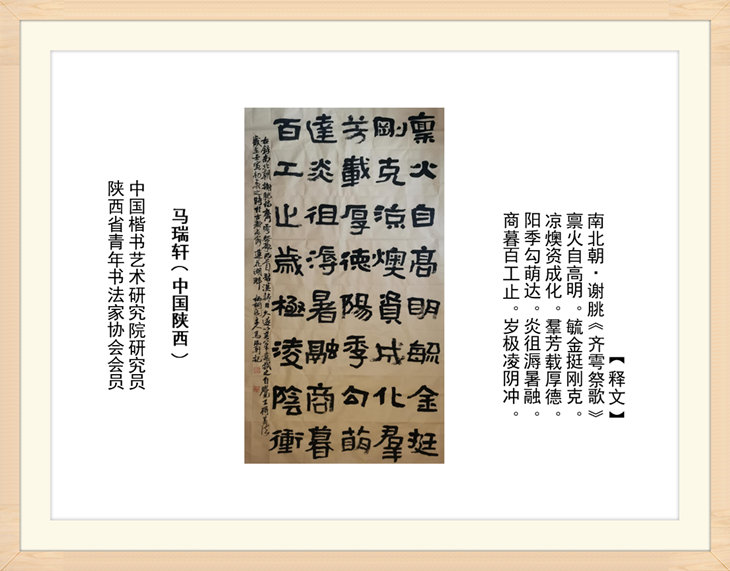 【释文】
南北朝·谢朓《齐雩祭歌》
禀火自高明。毓金挺刚克。
凉燠资成化。羣芳载厚德。
阳季勾萌达。炎徂溽暑融。
商暮百工止。岁极凌阴冲。
禀火自高明毓金挺
剛克涼燠資成化羣
芳載厚德陽季勾萌
達炎徂溽暑融商暮
百工止歲極淩陰衝
马瑞轩（中国陕西）
中国楷书艺术研究院研究员
陕西省青年书法家协会会员